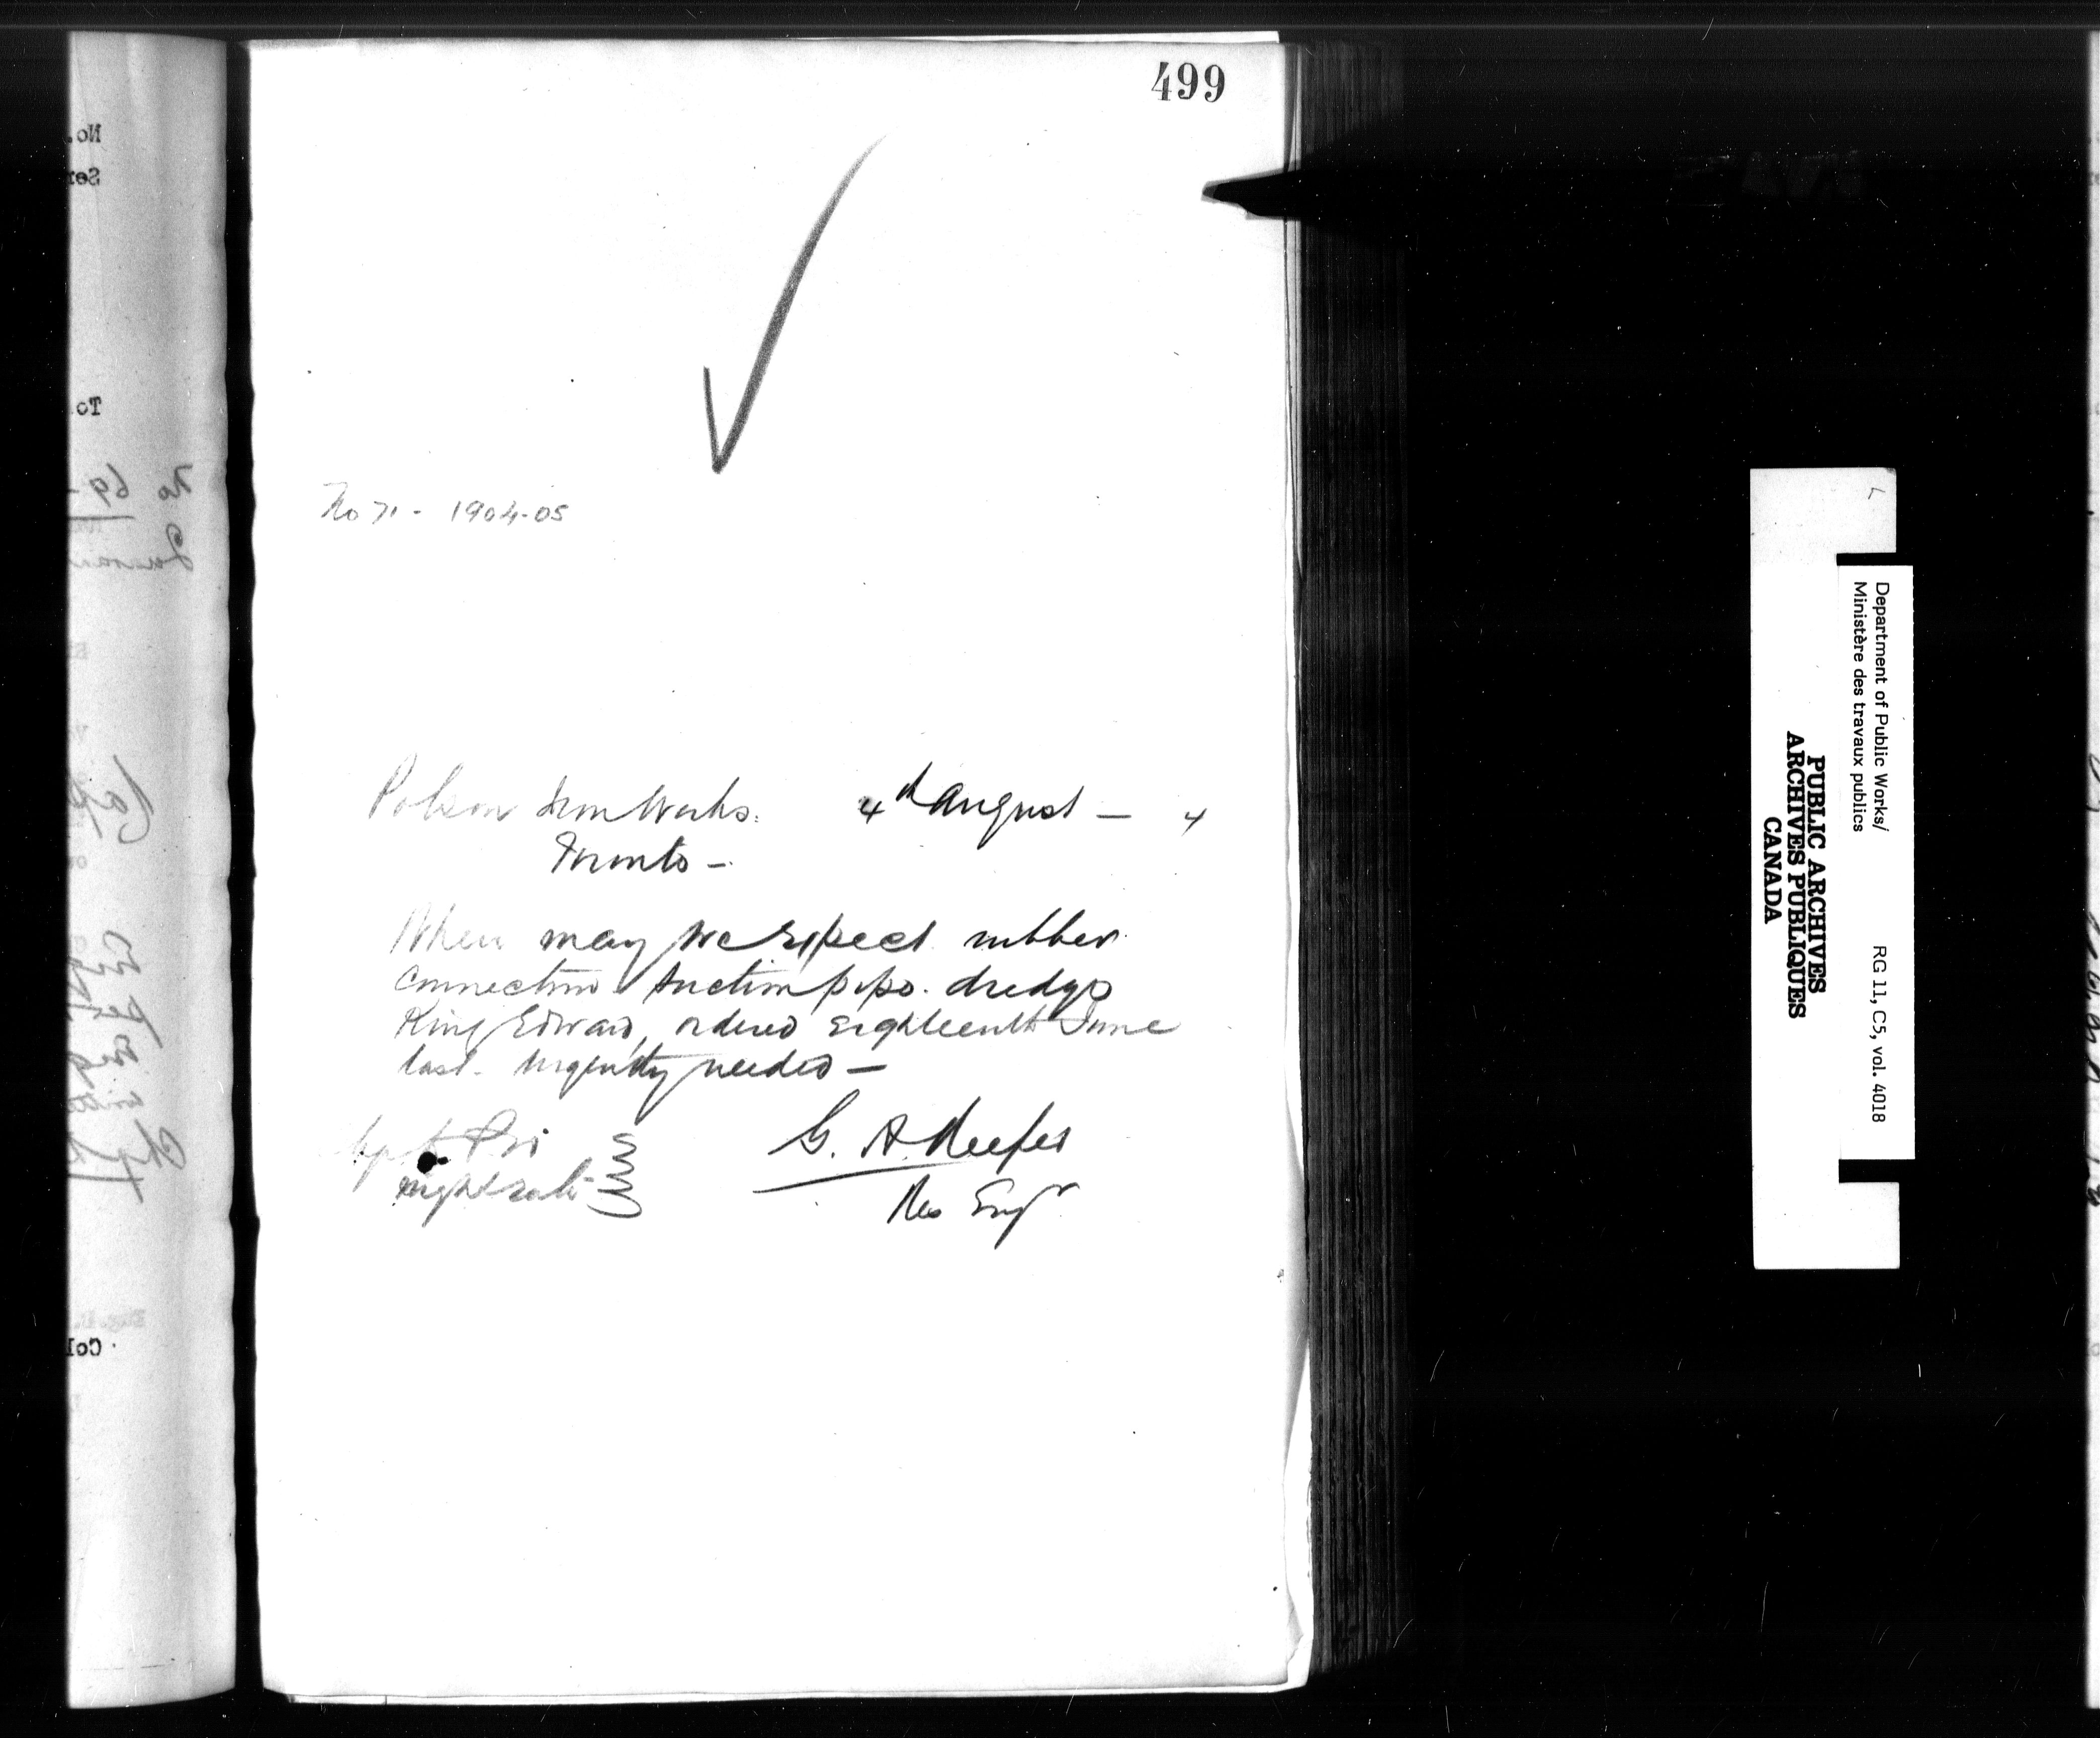 499
No 71 - 1904-05
Polson Iron Works. 4th August — 4
Toronto —
When may we expect rubber
connection suction pipe dredge
King Edward, ordered eighteenth June
last. Urgently needed —
G. A. Keefer
Res Engr
night rate
Department of Public Works/
Ministère des travaux publics
RG 11, C5, vol. 4018
PUBLIC ARCHIVES
ARCHIVES PUBLIQUES
CANADA